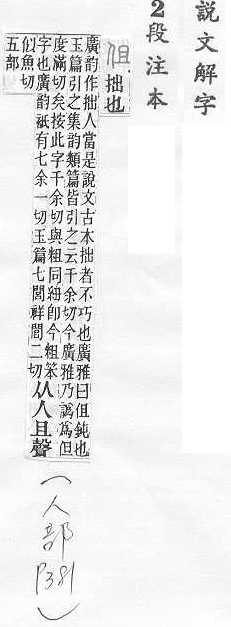 說文解字
2段注本
伹 拙也
廣韵作拙人當是說文古本拙者不巧也廣雅曰伹鈍也
玉篇引之集韵類篇皆引之云千余切今廣雅乃譌爲但
度滿切矣按此字千余切與粗同紐卽今粗笨
字也廣韵衹有七余一切玉篇七閭祥閭二切
从人且聲
似魚切
五部
(人部P381)